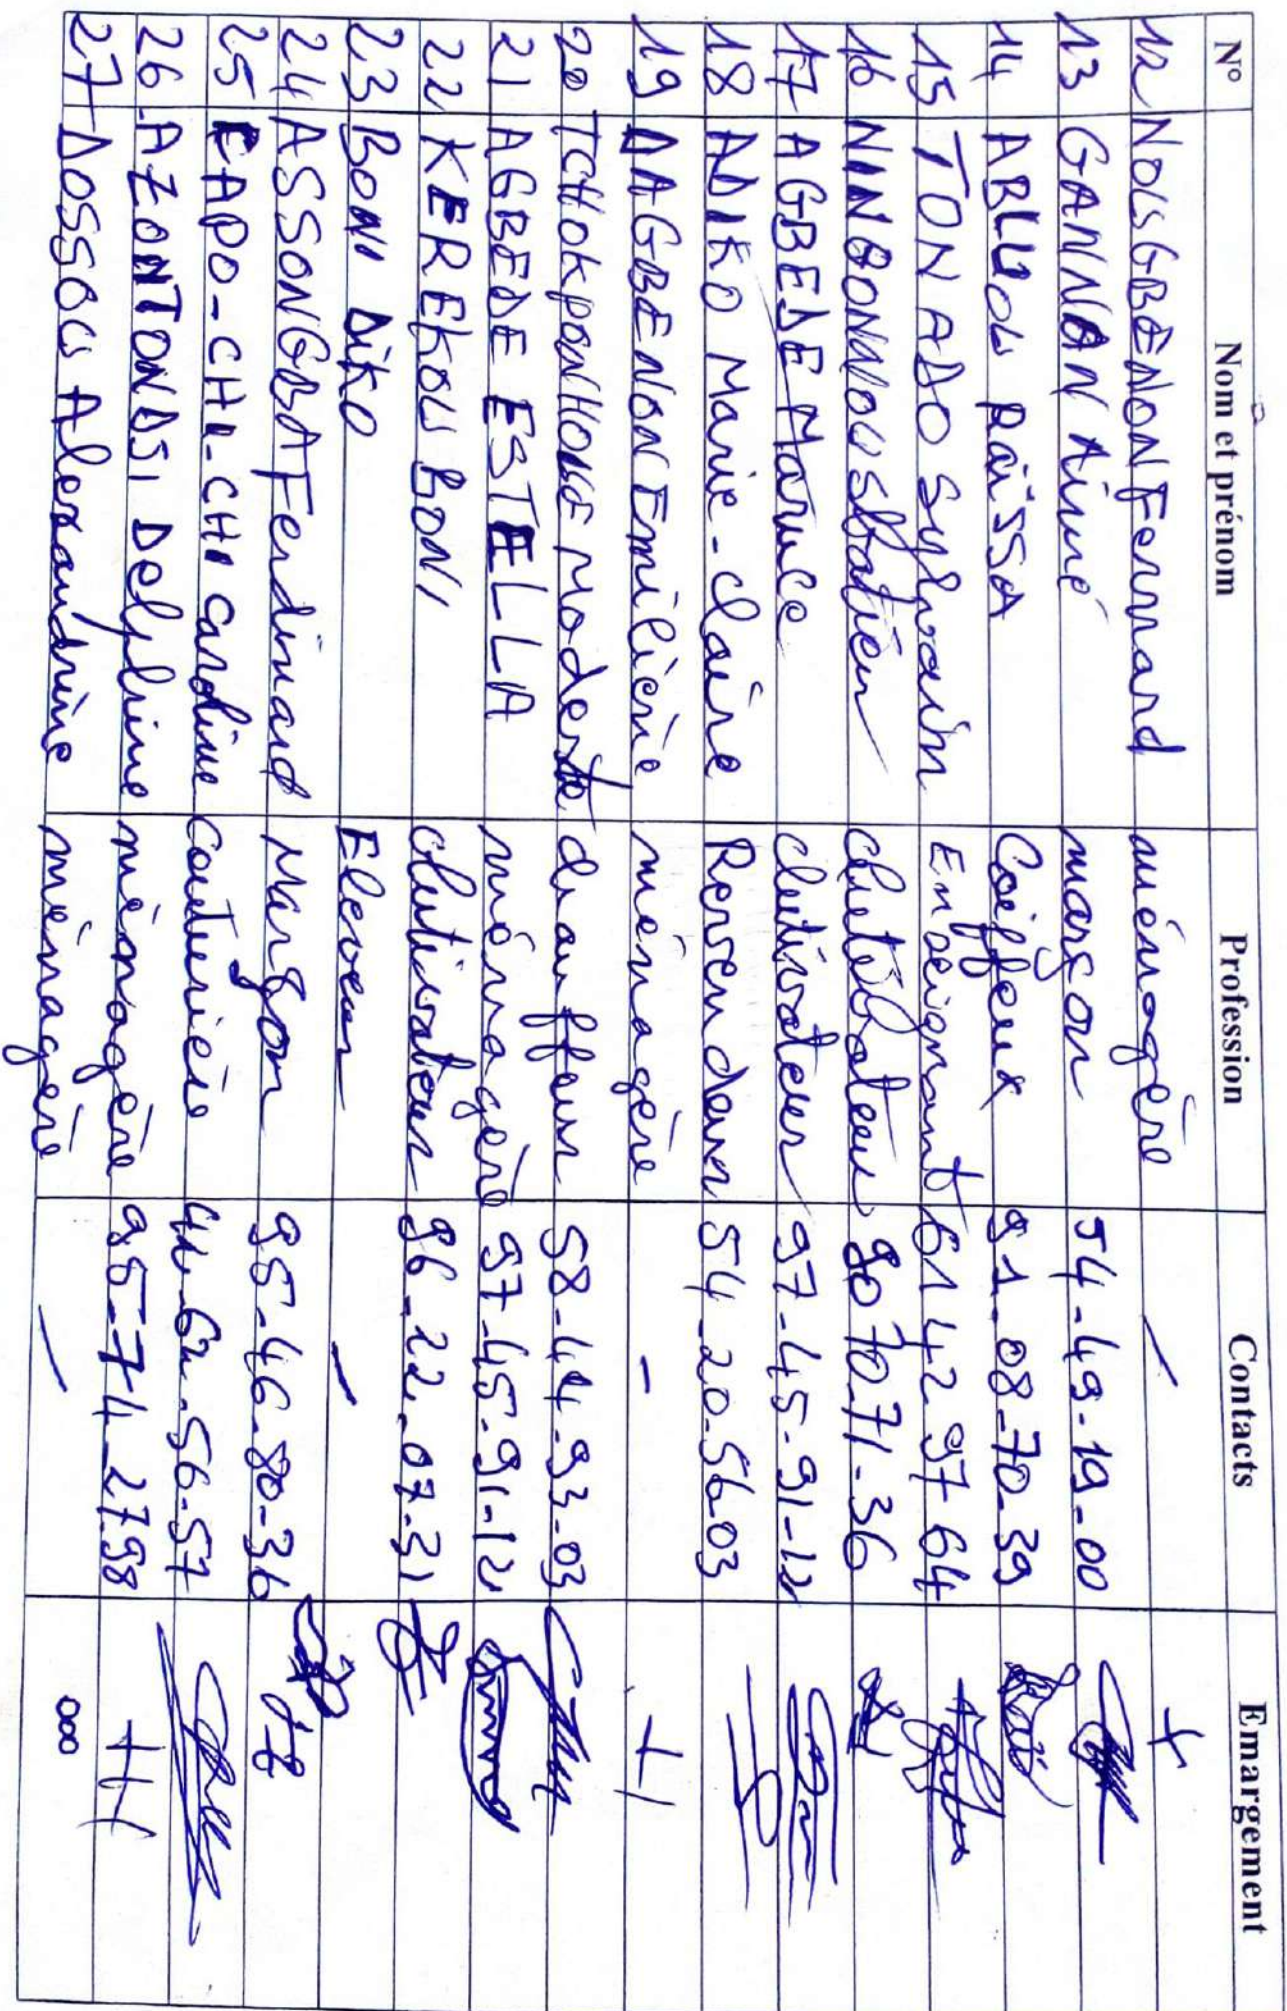 N° Nom et prénom Profession Contacts Emargement
12 NOUGBENON Fernnard ménagère / +
13 GANNAN Aimé maçon 54-49-19-00
14 ABLUOU RAÏSSA Coiffeux 91-08-70-39
15 TON ADO Sylvain Enseignant 61 42 97 64
16 NINBONNOU Sbatien clutibateur 90 70-71-36
17 AGBEDE Maruce clutivateur 97-45-91-12
18 ADIKO Marie-Claire Revendeur 54-20-56-03
19 DAGBENON Emilièrie ménagère - +
20 TCHOKPONHOUE Modeste chauffeur 58-44-93-03
21 AGBEDE ESTELLA ménagère 97-45-91-12
22 KEREKOU BONI clutivateur 96-22-07-31
23 BONI DIKO Eleveur /
24 ASSONGBA Ferdinand Marçon 95-46-80-36
25 EAPO-CHI-CHI Caroline Couturière 42-62-56-57
26 AZONTONDSI Delphine ménagère 95-74-27-98
27 DOSSOU Alexandrine ménagère /